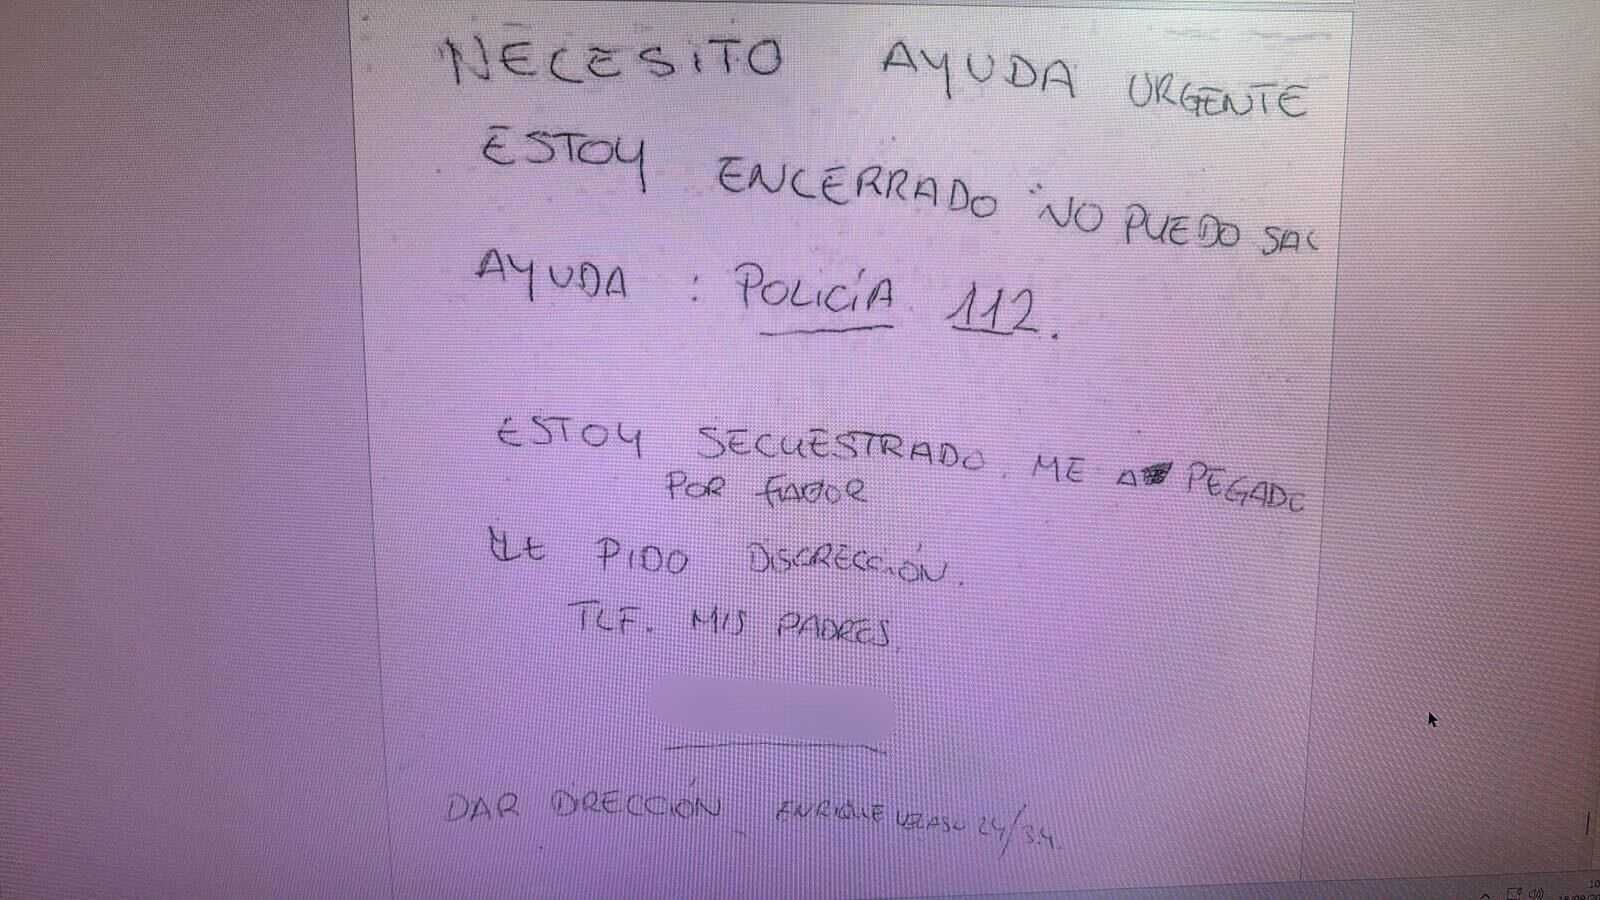 NECESITO AYUDA URGENTE
ESTOY ENCERRADO NO PUEDO SAL
AYUDA : POLICÍA 112.
ESTOY SECUESTRADO. ME A PEGADO
POR FAVOR
LE PIDO DISCRECCIÓN.
TLF. MIS PADRES.
DAR DIRECCIÓN ENRIQUE 24/3.4.